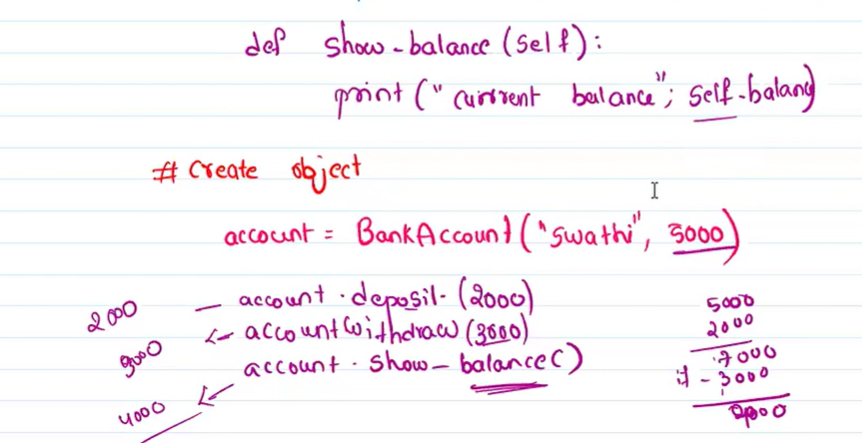 def show-balance (self):
print ("current balance"; self.balance)
# Create object
account = BankAccount ("Swathi", 5000)
2000 — account.deposit. (2000)
3000 <- account Withdraw (3000)
account.show-balance()
4000 <-
5000
2000
7000
- 3000